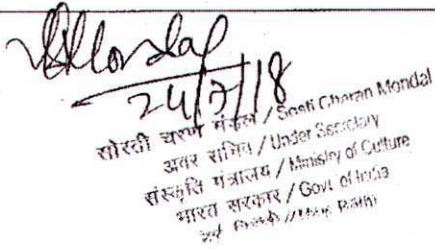 SCMondal
24/7/18
सोस्ती चरण मंडल / Sosti Charan Mondal
अवर सचिव / Under Secretary
संस्कृति मंत्रालय / Ministry of Culture
भारत सरकार / Govt. of India
नई दिल्ली / New Delhi